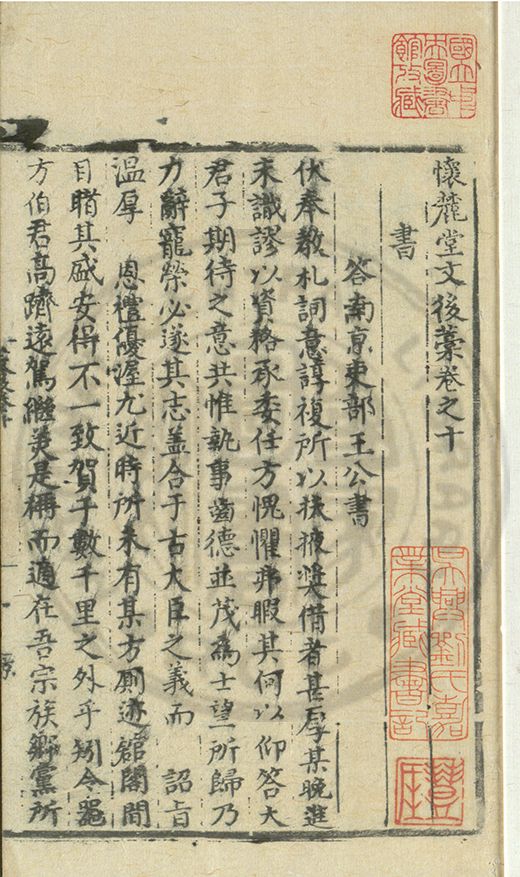 懷麓堂文後藁卷之十
書
答南京吏部王公書
伏奉教札詞意諄複所以扶掖獎借者甚厚某晚進
未識謬以資格承委任方愧懼弗暇其何以仰答大
君子期待之意共惟執事齒德並茂為士望所歸乃
力辭寵榮必遂其志盖合于古大臣之義而 詔旨
溫厚 恩禮優渥尤近時所未有某方厠迹舘閣間
目睹其盛安得不一致賀于數千里之外乎矧令器
方伯君高躋遠駕繼美是稱而適在吾宗族鄉黨所
國立中央圖書館收藏
吳興劉氏嘉業堂藏書記